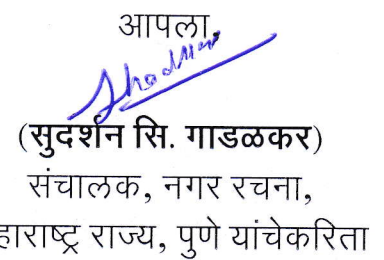 आपला,
(सुदर्शन सि. गाडळकर)
संचालक, नगर रचना,
हाराष्ट्र राज्य, पुणे यांचेकरिता